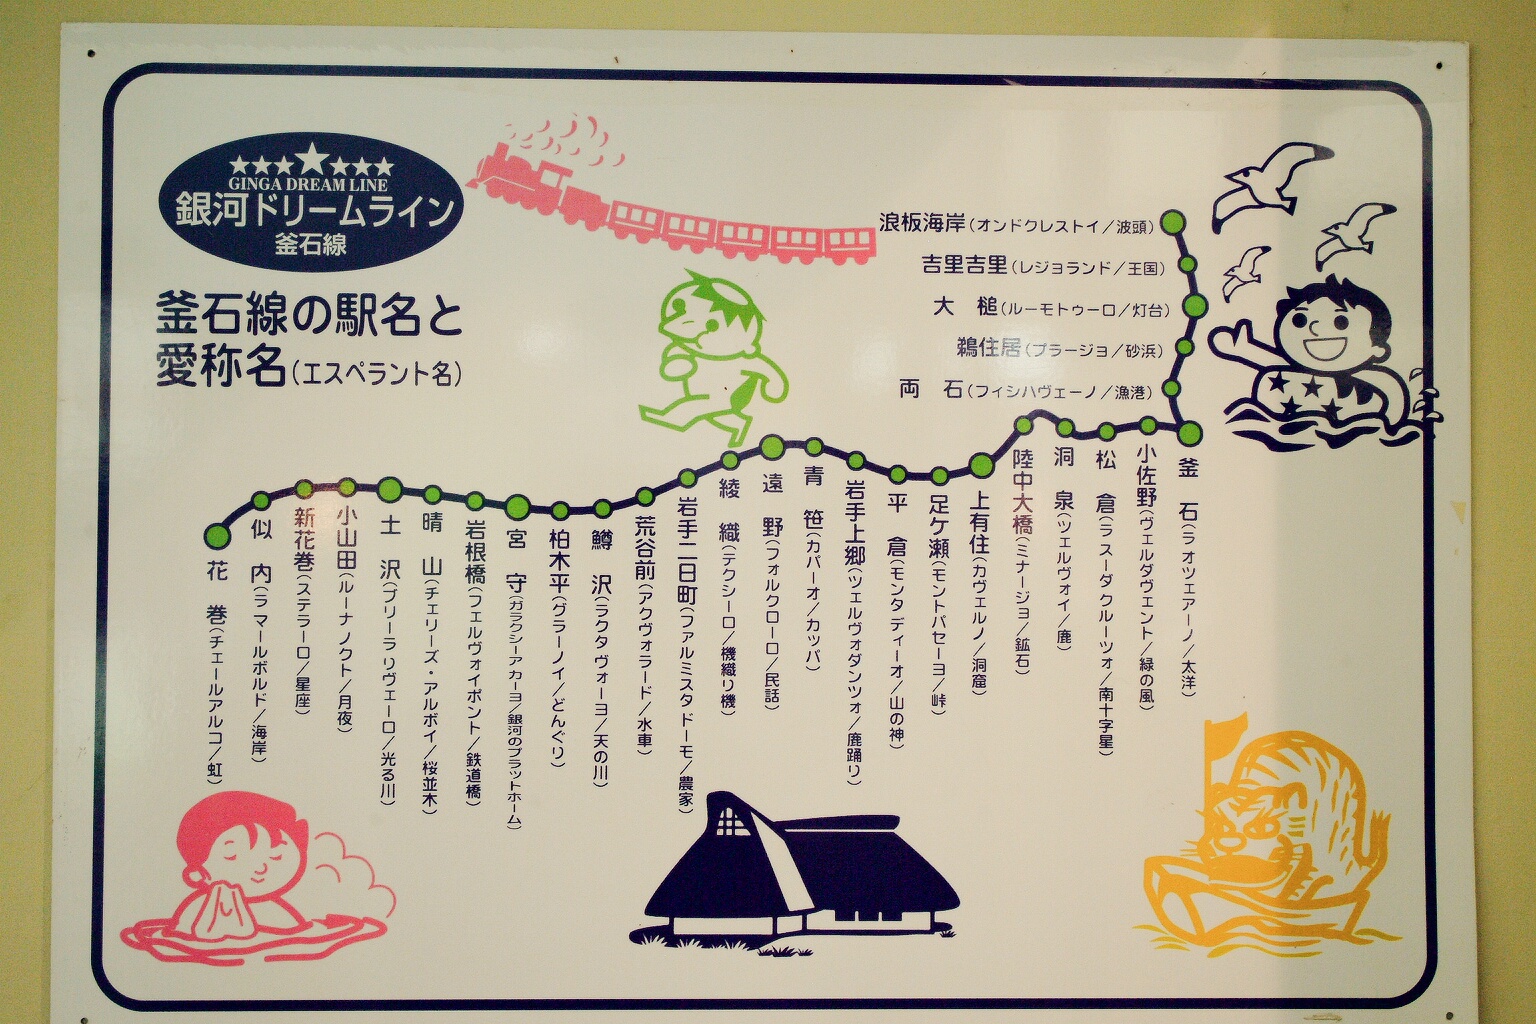 GINGA DREAM LINE
銀河ドリームライン
釜石線
釜石線の駅名と
愛称名(エスペラント名)
浪板海岸(オンドクレストイ/波頭)
吉里吉里(レジョランド/王国)
大 槌(ルーモトゥーロ/灯台)
鵜住居(プラージョ/砂浜)
両 石(フィシハヴェーノ/漁港)
花 巻(チェールアルコ/虹)
似 内(ラ マールボルド/海岸)
新花巻(ステラーロ/星座)
小山田(ルーナ ノクト/月夜)
土 沢(ブリーラ リヴェーロ/光る川)
晴 山(チェリーズ・アルボイ/桜並木)
岩根橋(フェルヴォイポント/鉄道橋)
宮 守(ガラクシーア カーヨ/銀河のプラットホーム)
柏木平(グラーノイ/どんぐり)
鱒 沢(ラクタ ヴォーヨ/天の川)
荒谷前(アクヴォラード/水車)
岩手二日町(ファルミスタ ドーモ/農家)
綾 織(テクシーロ/機織り機)
遠 野(フォルクローロ/民話)
青 笹(カパーオ/カッパ)
岩手上郷(ツェルヴォダンツォ/鹿踊り)
平 倉(モンタ ディーオ/山の神)
足ケ瀬(モントパセーヨ/峠)
上有住(カヴェルノ/洞窟)
陸中大橋(ミナージョ/鉱石)
洞 泉(ツェルヴォイ/鹿)
松 倉(ラ スーダ クルーツォ/南十字星)
小佐野(ヴェルダ ヴェント/緑の風)
釜 石(ラ オツェアーノ/大洋)